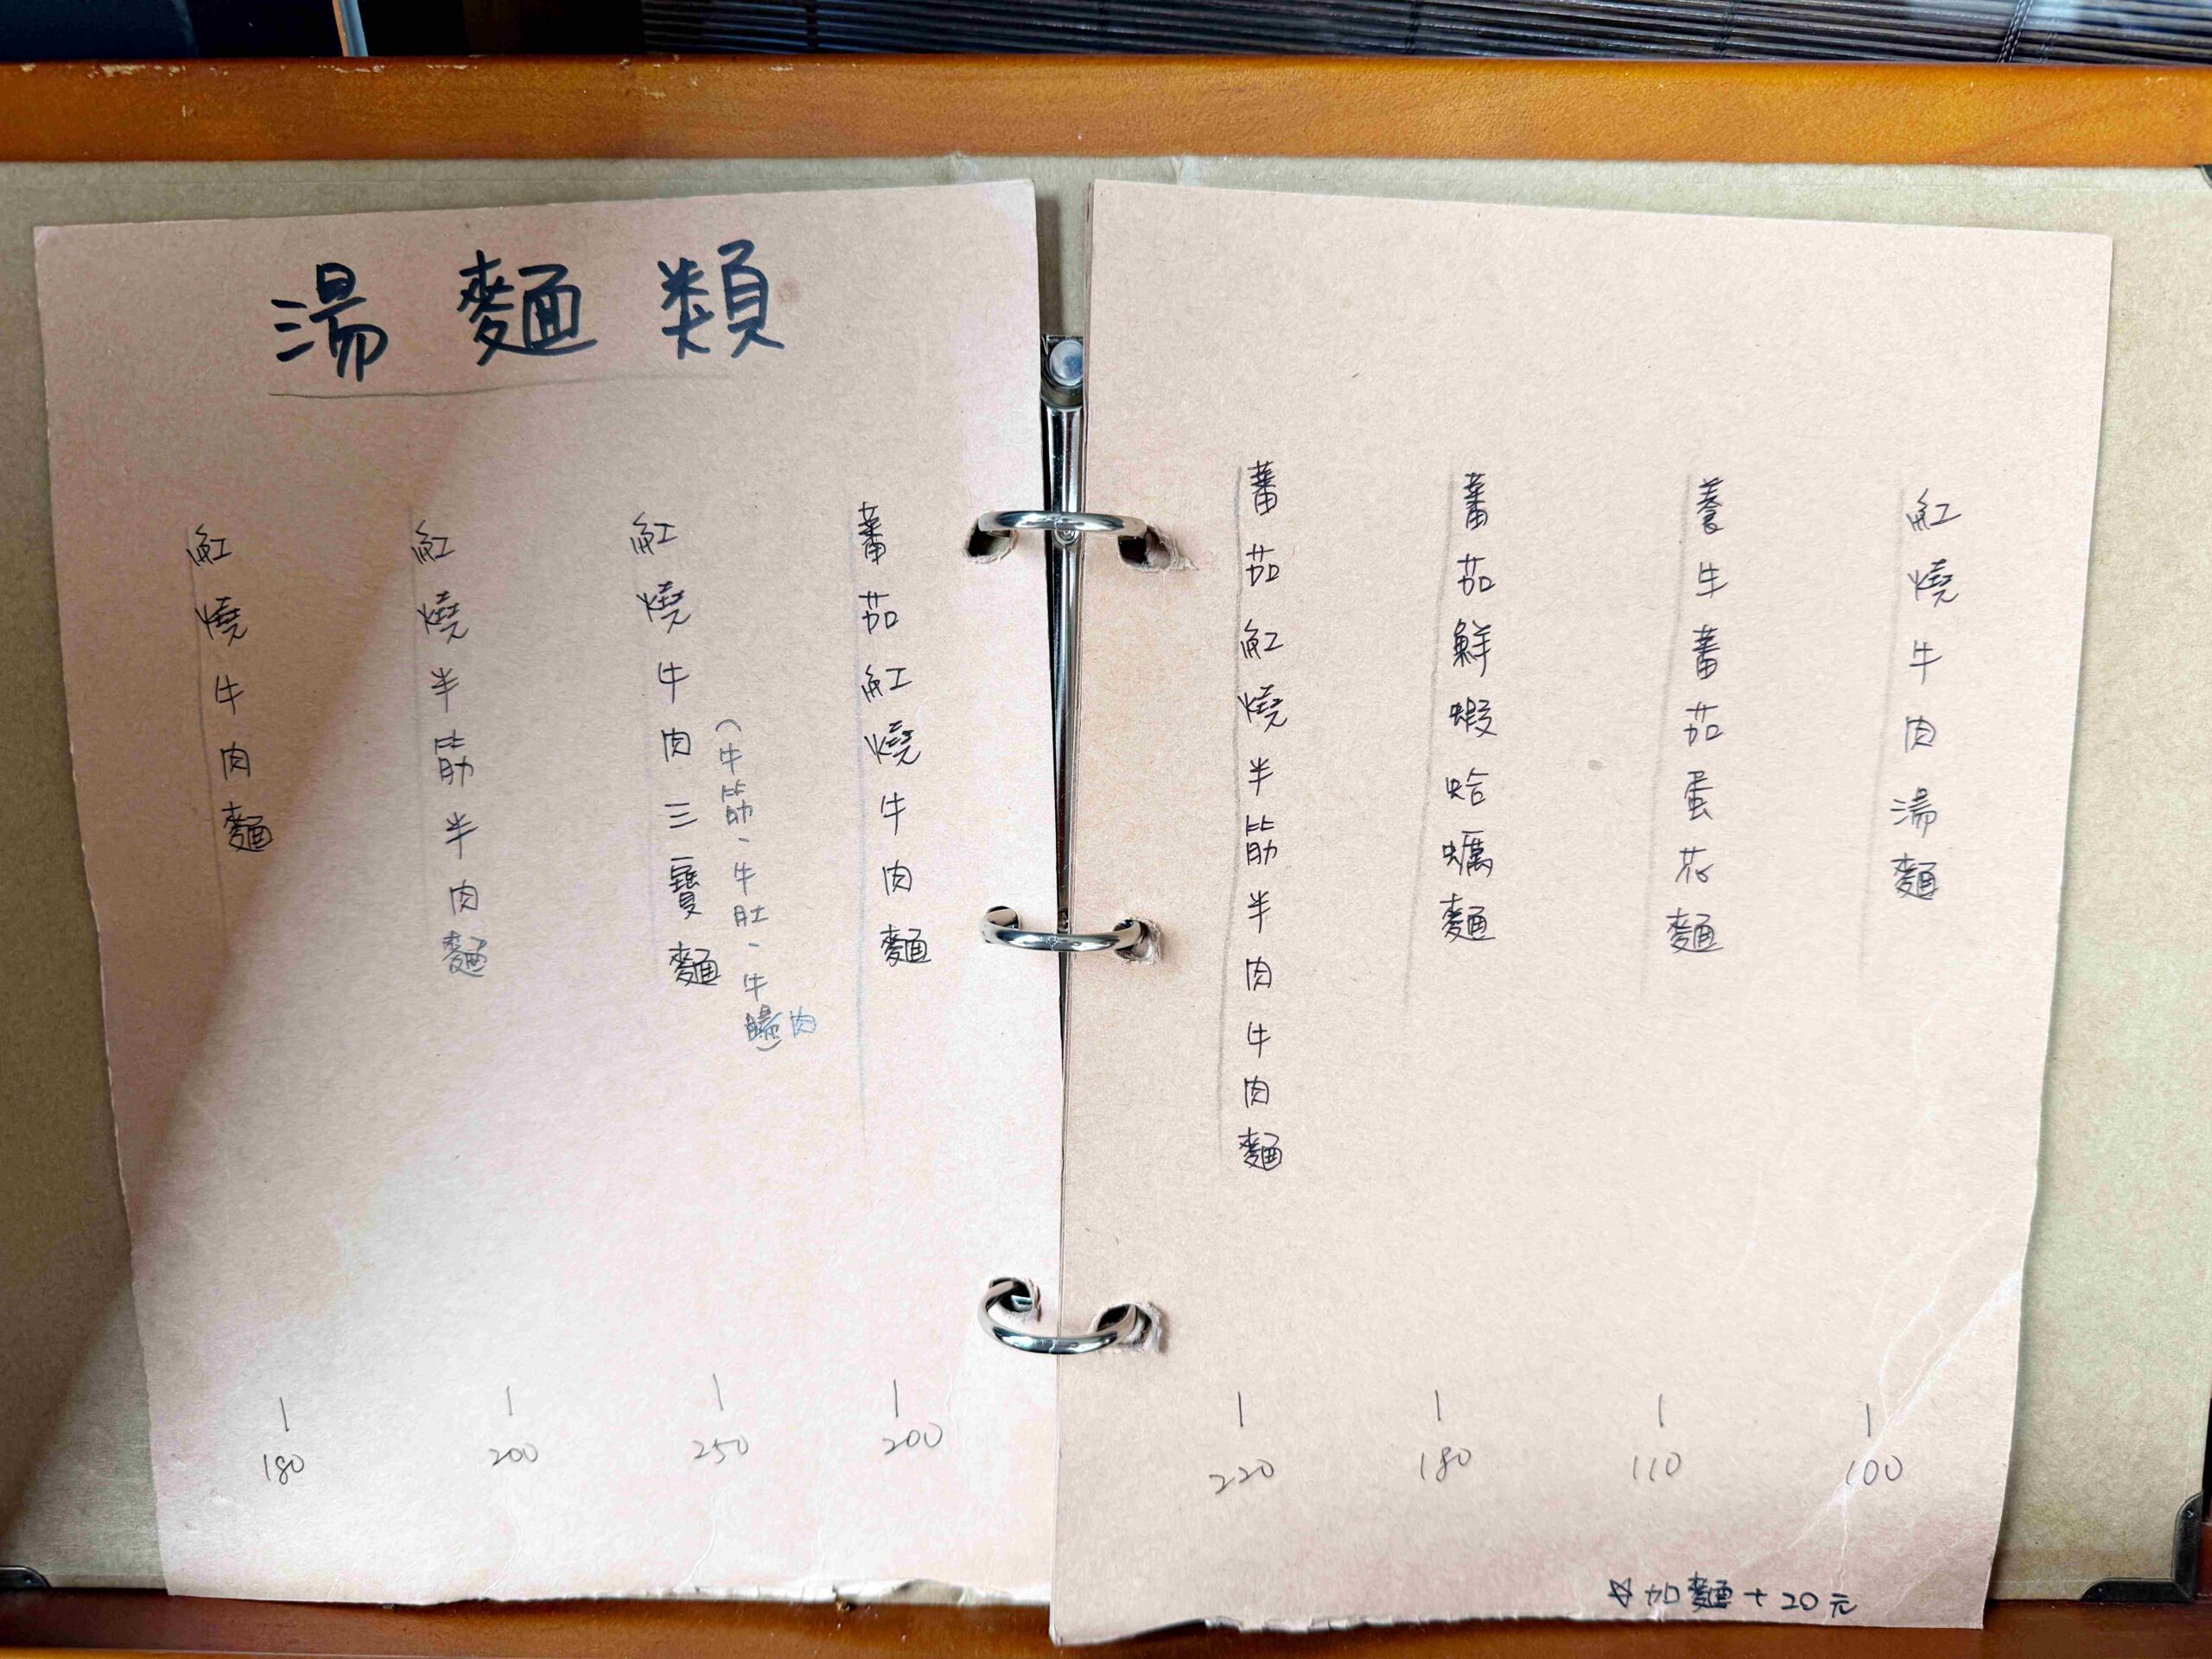 湯麵類
紅燒牛肉麵
180
紅燒半筋半肉麵
200
紅燒牛肉三寶麵
(牛筋、牛肚、牛腱肉)
250
蕃茄紅燒牛肉麵
200
蕃茄紅燒半筋半肉牛肉麵
220
蕃茄鮮蝦蛤蠣麵
180
養生蕃茄蛋花麵
110
紅燒牛肉湯麵
100
☆加麵+20元